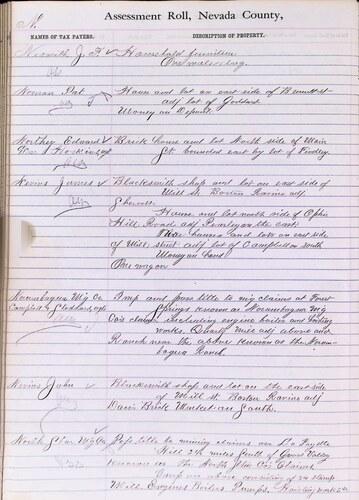 N.
Assessment Roll, Nevada County,
NAMES OF TAX PAYERS.
DESCRIPTION OF PROPERTY.
J. F. Household furniture
One watch
Noonan Pat House and lot on east side of Bennett st
adj lot of Goddard
Money on Deposit
Northey Edward Brick house and lot North side of Main
St bounded east by lot of
Nevins James Blacksmith shop and lot on east side of
Mill st Boston Ravine adj
House and lot north side of Ophir
Hill Road adj on the east
houses and lots on east side
of Mill street adj lot of Campbell on south
Money on hand
One wagon
Norumbagua Mg Co Imp and poss title to mg claims at Forest
Campbell & agts Springs known as Norumbagua Mg
Co's claims including engine boiler and hoisting
works. Quartz Mill adj above and
Ranch near the above known as the Norum-
bagua Ranch.
Nevins John Blacksmith shop and lot on the east side
of Mill st Boston Ravine adj
Davis Brick on South.
North Star Mg Co Poss title to mining claims on La Fayette
Hill 2½ miles South of Grass Valley
known as the North Star Co's Claims
Imp on above consisting of stamp
Mill, Engines Boilers Pumps, Hoisting works &c